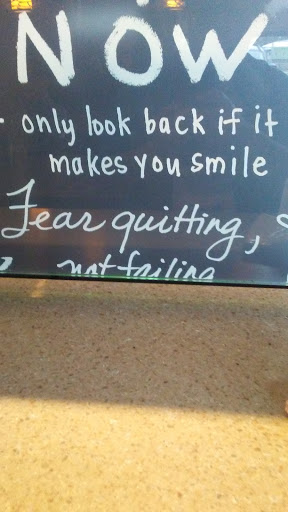 NOW
only look back if it
makes you smile
Fear quitting,
not failing